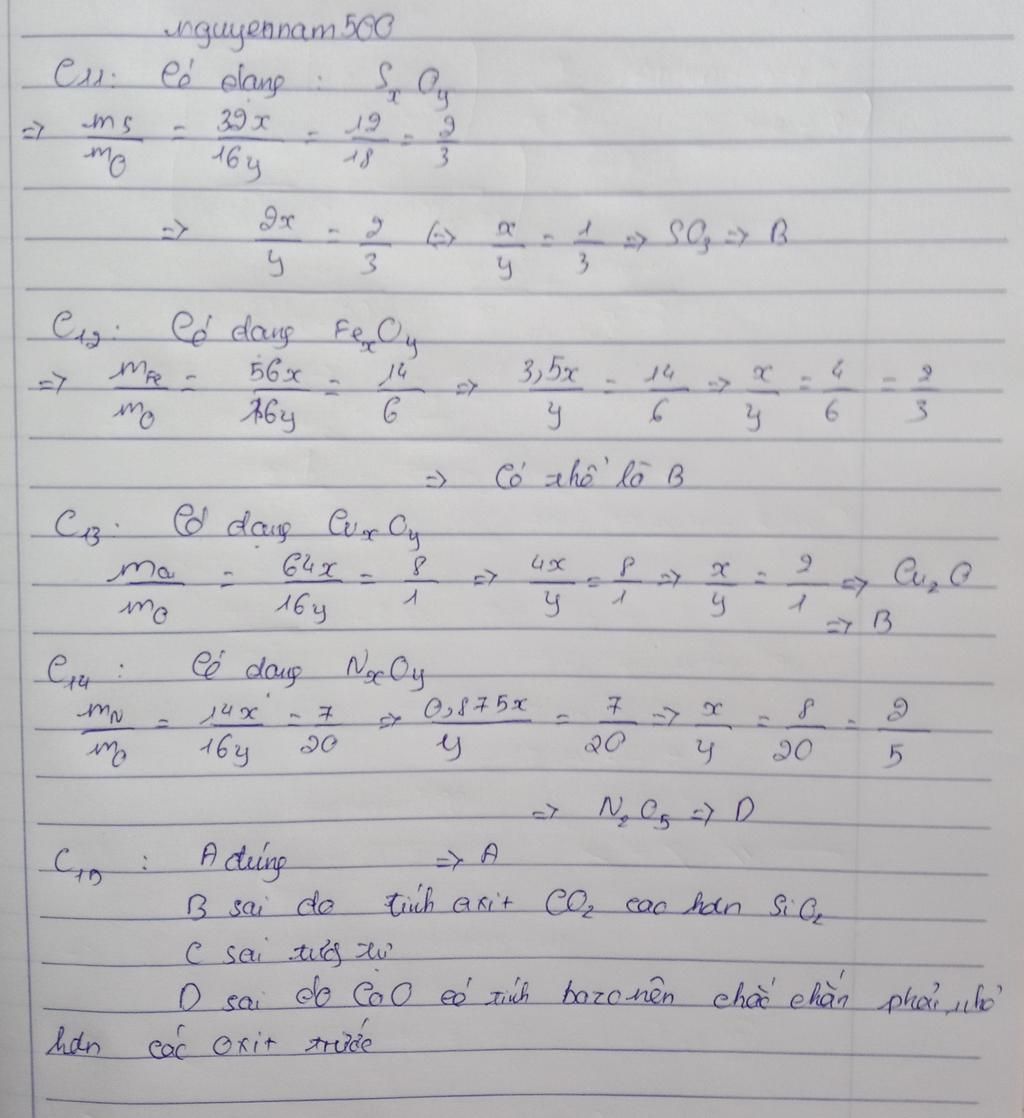 nguyennam500
C11: Có dạng : SxOy
=> mS/mO = 32x/16y = 12/18 = 2/3
=> 2x/y = 2/3 <=> x/y = 1/3 => SO3 => B
C12: Có dạng FexOy
=> mFe/mO = 56x/16y = 14/6 => 3,5x/y = 14/6 => x/y = 4/6 = 2/3
=> Có thể là B
C13: Có dạng CuxOy
mCu/mO = 64x/16y = 8/1 => 4x/y = 8/1 => x/y = 2/1 => Cu2O
=> B
C14: Có dạng NxOy
mN/mO = 14x/16y = 7/20 => 0,875x/y = 7/20 => x/y = 8/20 = 2/5
=> N2O5 => D
C15: A đúng => A
B sai do tính axit CO2 cao hơn SiO2
C sai tương tự
D sai do CaO có tính bazo nên chắc chắn phải nhỏ
hơn các oxit trước